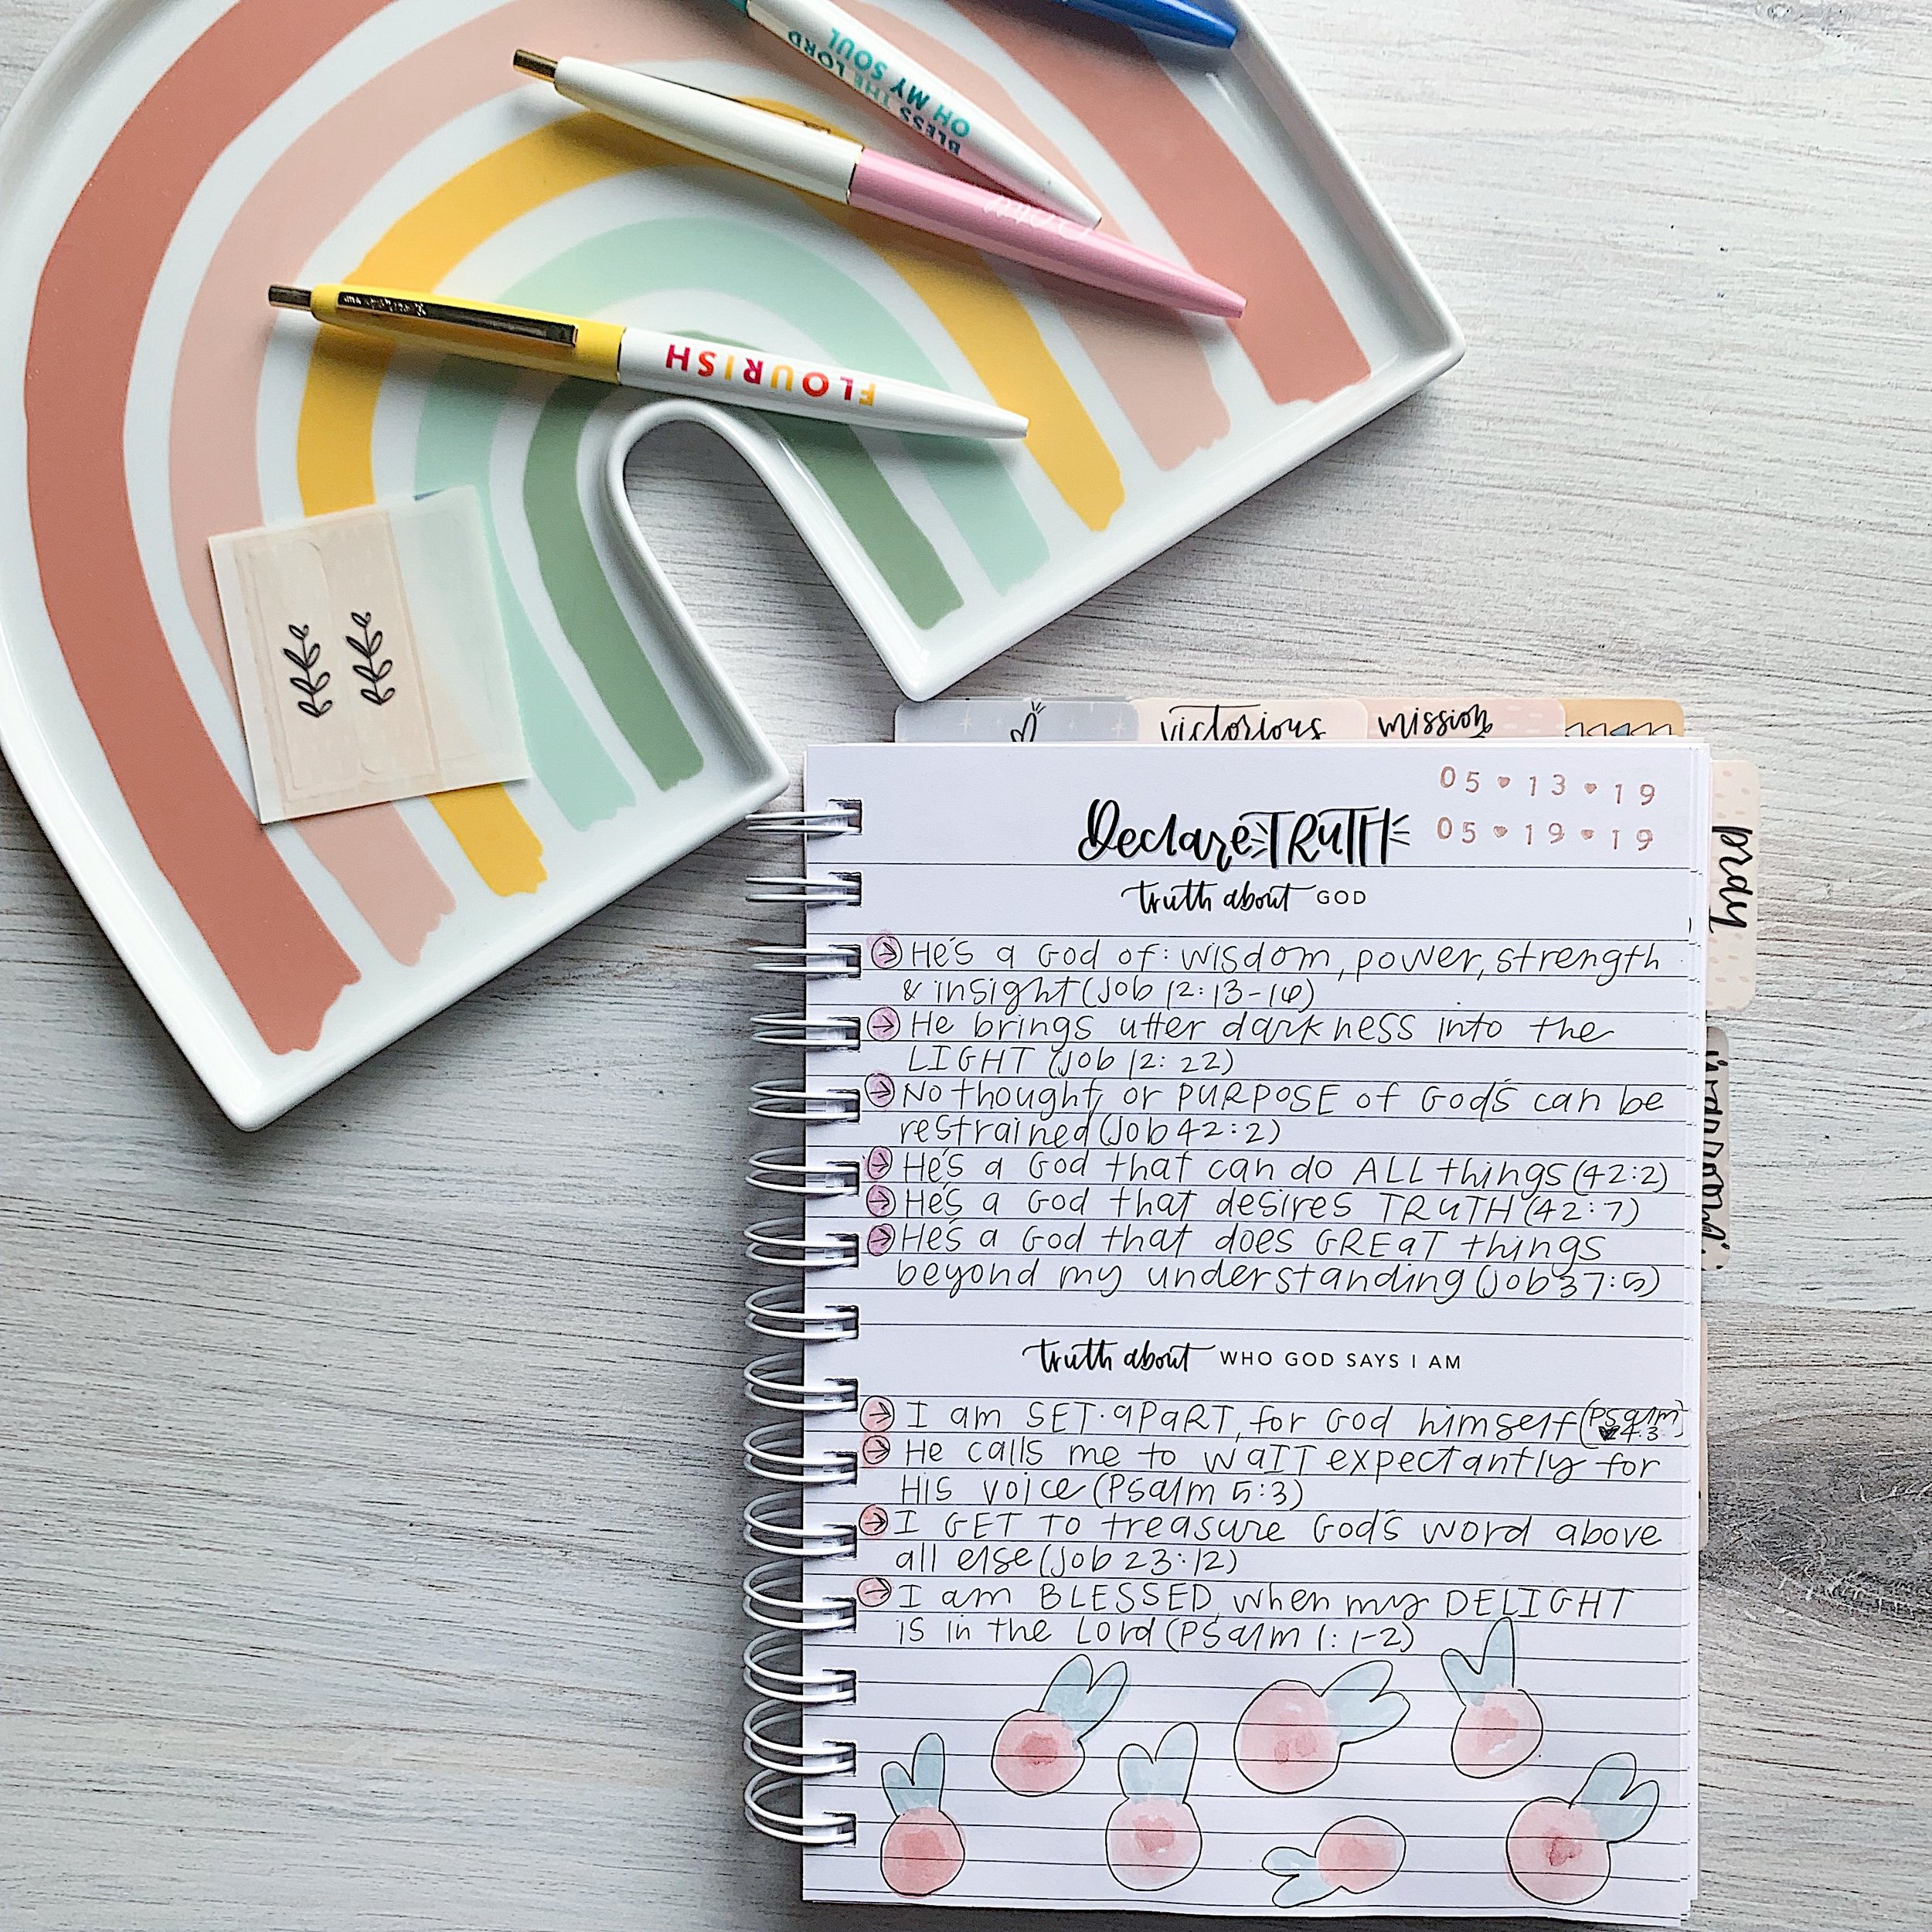 BLESS THE LORD
OH MY SOUL
FLOURISH
victorious
mission
pray
05 13 19
05 19 19
Declare TRUTH
truth about GOD
He's a God of: wisdom, power, strength
& insight (Job 12:13-16)
He brings utter darkness into the
LIGHT (Job 12:22)
No thought, or PURPOSE of God's can be
restrained (Job 42:2)
He's a God that can do ALL things (42:2)
He's a God that desires TRUTH (42:7)
He's a God that does GREAT things
beyond my understanding (Job 37:5)
truth about WHO GOD SAYS I AM
I am SET·APART, for God himself (Psalm
4:3)
He calls me to WAIT expectantly for
His voice (Psalm 5:3)
I GET TO treasure God's word above
all else (Job 23:12)
I am BLESSED when my DELIGHT
is in the Lord (Psalm 1:1-2)